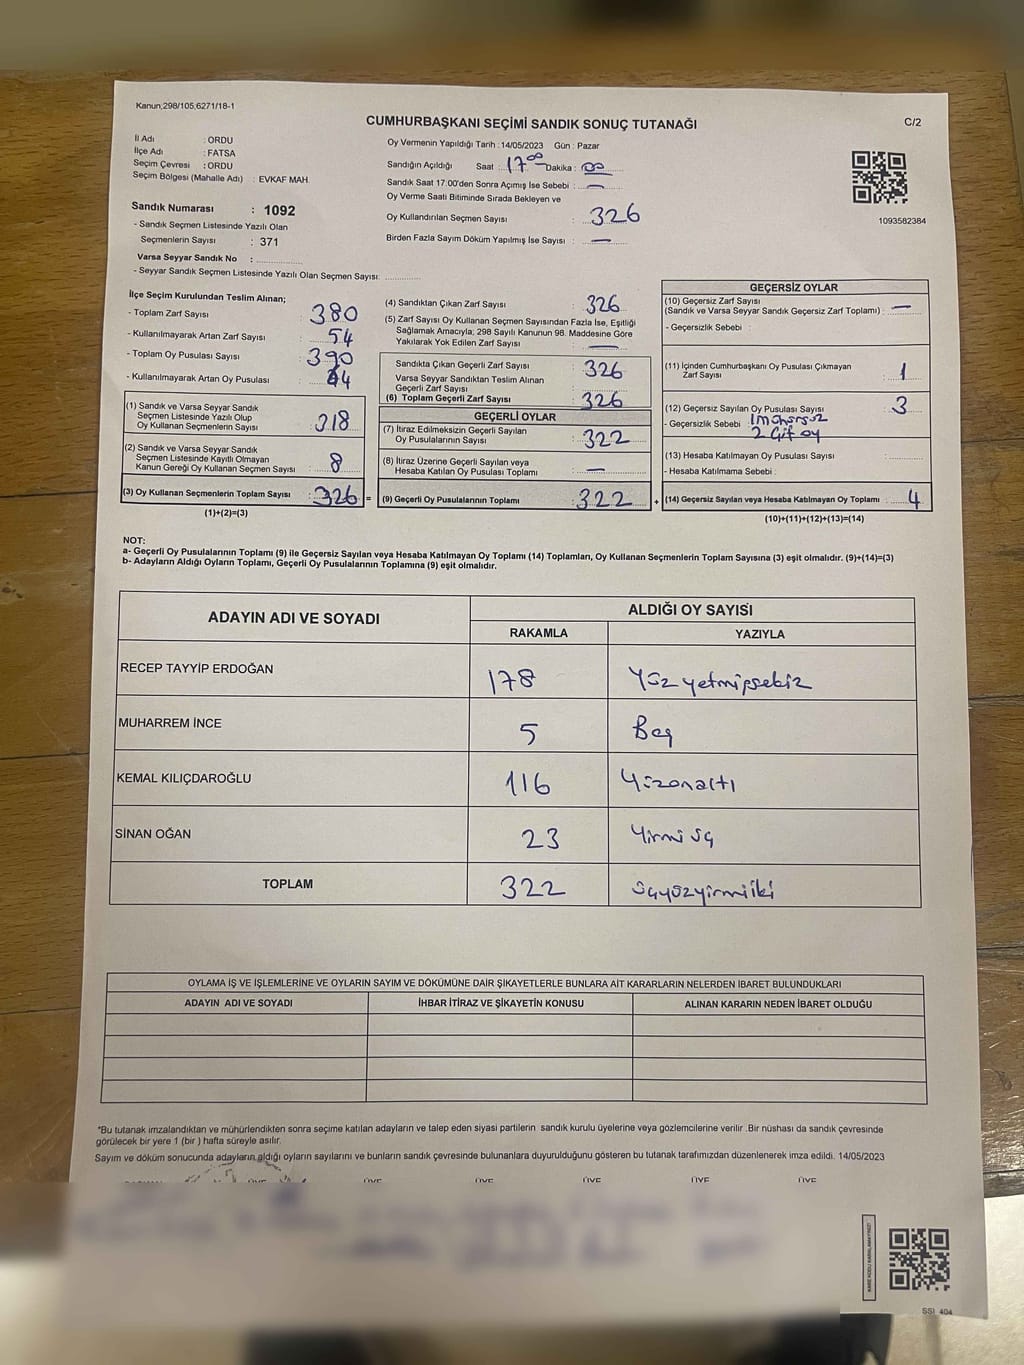 Kanun;298/105,6271/18-1
CUMHURBAŞKANI SEÇİMİ SANDIK SONUÇ TUTANAĞI
C/2
İl Adı : ORDU
İlçe Adı : FATSA
Seçim Çevresi : ORDU
Seçim Bölgesi (Mahalle Adı) : EVKAF MAH.
Sandık Numarası : 1092
- Sandık Seçmen Listesinde Yazılı Olan
Seçmenlerin Sayısı : 371
Varsa Seyyar Sandık No :
- Seyyar Sandık Seçmen Listesinde Yazılı Olan Seçmen Sayısı:
Oy Vermenin Yapıldığı Tarih : 14/05/2023 Gün : Pazar
Sandığın Açıldığı Saat : 17 00 Dakika : 00
Sandık Saat 17:00'den Sonra Açımış İse Sebebi : —
Oy Verme Saati Bitiminde Sırada Bekleyen ve
Oy Kullandırılan Seçmen Sayısı : 326
Birden Fazla Sayım Döküm Yapılmış İse Sayısı : —
1093582384
İlçe Seçim Kurulundan Teslim Alınan;
- Toplam Zarf Sayısı : 380
- Kullanılmayarak Artan Zarf Sayısı : 54
- Toplam Oy Pusulası Sayısı : 390
- Kullanılmayarak Artan Oy Pusulası : 44
(1) Sandık ve Varsa Seyyar Sandık
Seçmen Listesinde Yazılı Olup
Oy Kullanan Seçmenlerin Sayısı : 318
(2) Sandık ve Varsa Seyyar Sandık
Seçmen Listesinde Kayıtlı Olmayan
Kanun Gereği Oy Kullanan Seçmen Sayısı : 8
(3) Oy Kullanan Seçmenlerin Toplam Sayısı : 326 =
(1)+(2)=(3)
(4) Sandıktan Çıkan Zarf Sayısı : 326
(5) Zarf Sayısı Oy Kullanan Seçmen Sayısından Fazla İse, Eşitliği
Sağlamak Amacıyla; 298 Sayılı Kanunun 98. Maddesine Göre
Yakılarak Yok Edilen Zarf Sayısı : —
Sandıkta Çıkan Geçerli Zarf Sayısı : 326
Varsa Seyyar Sandıktan Teslim Alınan
Geçerli Zarf Sayısı
(6) Toplam Geçerli Zarf Sayısı : 326
GEÇERLİ OYLAR
(7) İtiraz Edilmeksizin Geçerli Sayılan
Oy Pusulalarının Sayısı : 322
(8) İtiraz Üzerine Geçerli Sayılan veya
Hesaba Katılan Oy Pusulası Toplamı : —
(9) Geçerli Oy Pusulalarının Toplamı : 322 +
GEÇERSİZ OYLAR
(10) Geçersiz Zarf Sayısı
(Sandık ve Varsa Seyyar Sandık Geçersiz Zarf Toplamı) : —
- Geçersizlik Sebebi :
(11) İçinden Cumhurbaşkanı Oy Pusulası Çıkmayan
Zarf Sayısı : 1
(12) Geçersiz Sayılan Oy Pusulası Sayısı : 3
- Geçersizlik Sebebi 1 mühürsüz
2 Çift oy
(13) Hesaba Katılmayan Oy Pusulası Sayısı :
- Hesaba Katılmama Sebebi :
(14) Geçersiz Sayılan veya Hesaba Katılmayan Oy Toplamı : 4
(10)+(11)+(12)+(13)=(14)
NOT:
a- Geçerli Oy Pusulalarının Toplamı (9) ile Geçersiz Sayılan veya Hesaba Katılmayan Oy Toplamı (14) Toplamları, Oy Kullanan Seçmenlerin Toplam Sayısına (3) eşit olmalıdır. (9)+(14)=(3)
b- Adayların Aldığı Oyların Toplamı, Geçerli Oy Pusulalarının Toplamına (9) eşit olmalıdır.
ADAYIN ADI VE SOYADI
ALDIĞI OY SAYISI
RAKAMLA YAZIYLA
RECEP TAYYİP ERDOĞAN 178 Yüzyetmişsekiz
MUHARREM İNCE 5 Beş
KEMAL KILIÇDAROĞLU 116 Yüzonaltı
SİNAN OĞAN 23 Yirmi üç
TOPLAM 322 üçyüzyirmiiki
OYLAMA İŞ VE İŞLEMLERİNE VE OYLARIN SAYIM VE DÖKÜMÜNE DAİR ŞİKAYETLERLE BUNLARA AİT KARARLARIN NELERDEN İBARET BULUNDUKLARI
ADAYIN ADI VE SOYADI İHBAR İTİRAZ VE ŞİKAYETİN KONUSU ALINAN KARARIN NEDEN İBARET OLDUĞU
*Bu tutanak imzalandıktan ve mühürlendikten sonra seçime katılan adayların ve talep eden siyasi partilerin sandık kurulu üyelerine veya gözlemcilerine verilir .Bir nüshası da sandık çevresinde
görülecek bir yere 1 (bir ) hafta süreyle asılır.
Sayım ve döküm sonucunda adayların aldığı oyların sayılarını ve bunların sandık çevresinde bulunanlara duyurulduğunu gösteren bu tutanak tarafımızdan düzenlenerek imza edildi. 14/05/2023
ÜYE ÜYE ÜYE ÜYE ÜYE
KARE KODU KARALAMAYINIZ!
SSİ 404